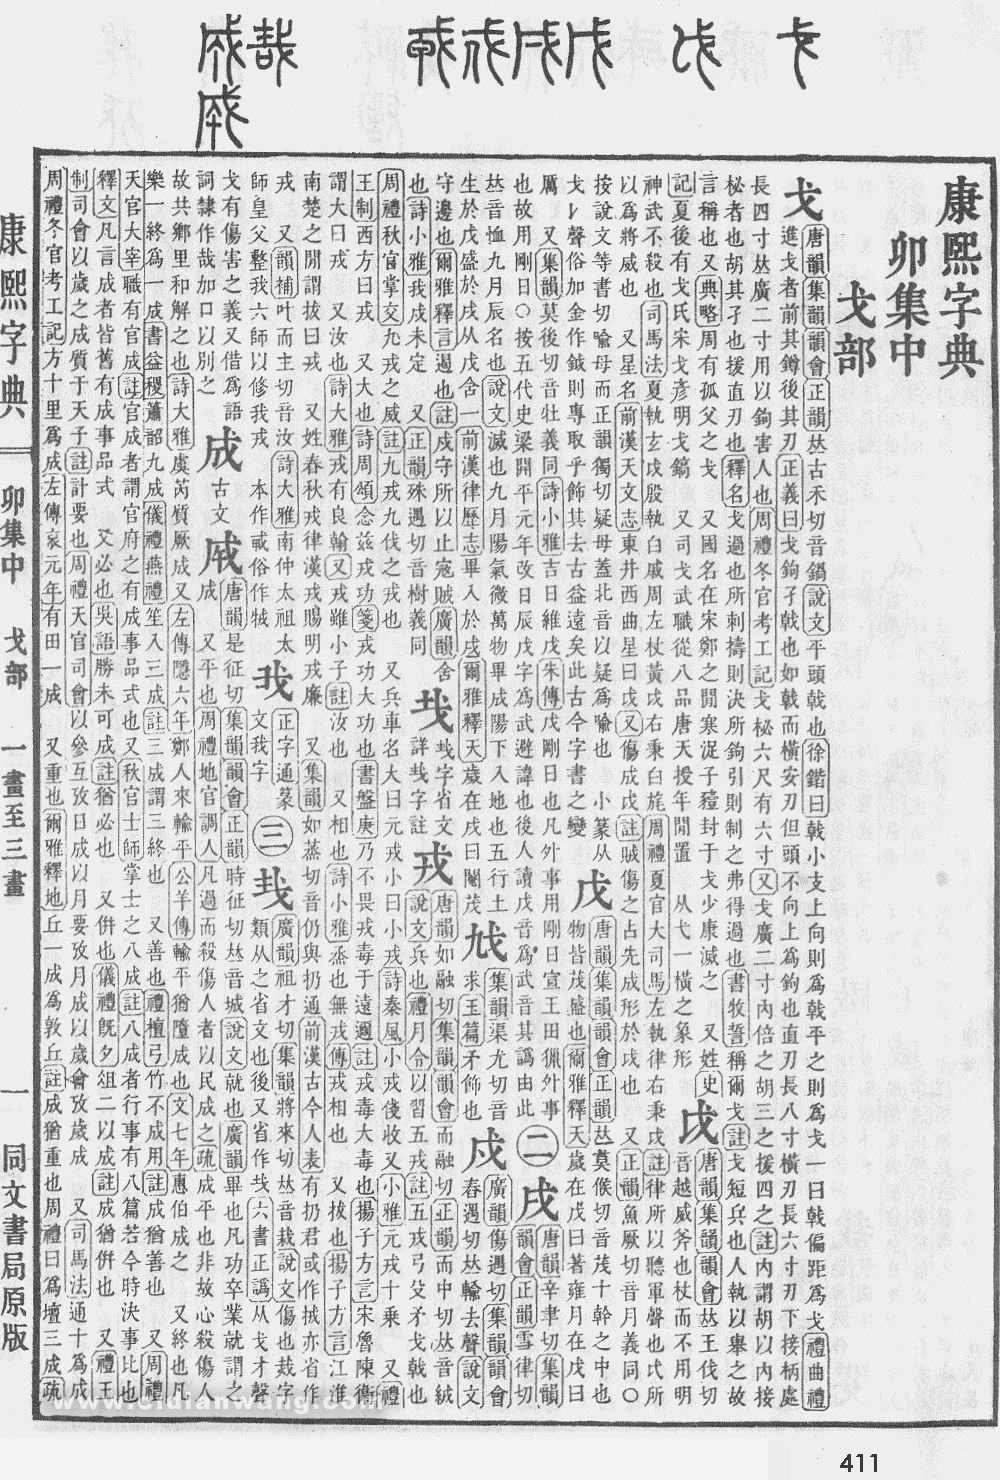 康熙字典
卯集中
戈部
戈 唐韻集韻韻會正韻𠀤古禾切音鍋說文平頭戟也徐鍇曰戟小支上向則爲戟平之則爲戈一曰戟偏距爲戈禮曲禮
進戈者前其鐏後其刃正義曰戈鉤孑戟也如戟而橫安刃但頭不向上爲鉤也直刃長八寸橫刃長六寸刃下接柄處
長四寸𠀤廣二寸用以鉤害人也周禮冬官考工記戈柲六尺有六寸又戈廣二寸內倍之胡三之援四之註內謂胡以內接
柲者也胡其孑也援直刃也釋名戈過也所刺擣則決所鉤引則制之弗得過也書牧誓稱爾戈註戈短兵也人執以舉之故
言稱也又典略周有孤父之戈 又國名在宋鄭之閒寒浞子豷封于戈少康滅之 又姓史
記夏後有戈氏宋戈彥明戈鎬 又司戈武職從八品唐天授年閒置 从弋一橫之象形
戉 唐韻集韻韻會𠀤王伐切
音越威斧也杖而不用明
神武不殺也司馬法夏執玄戉殷執白戚周左杖黃戉右秉白旄周禮夏官大司馬左執律右秉戉註律所以聽軍聲也戉所
以爲將威也 又星名前漢天文志東井西曲星曰戉又傷成戉註賊傷之占先成形於戉也 又正韻魚厥切音月義同○
按說文等書切喻母而正韻獨切疑母蓋北音以疑爲喻也 小篆从
戈𠄌聲俗加金作鉞則專取乎飾其去古益遠矣此古今字書之變
戊 唐韻集韻韻會正韻𠀤莫候切音茂十幹之中也
物皆茂盛也爾雅釋天歲在戊曰著雍月在戊曰
厲 又集韻莫後切音牡義同詩小雅吉日維戊朱傳戊剛日也凡外事用剛日宣王田獵外事
也故用剛日○按五代史梁開平元年改日辰戊字爲武避諱也後人讀戊音爲武音其譌由此
二
戌 唐韻辛聿切集韻
韻會正韻雪律切
𠀤音恤九月辰名也說文滅也九月陽氣微萬物畢成陽下入地也五行土
生於戊盛於戌从戊含一前漢律歷志畢入於戌爾雅釋天歲在戌曰閹茂
集韻渠尤切音
求玉篇矛飾也
戍 廣韻傷遇切集韻韻會
春遇切𠀤輸去聲說文
守邊也爾雅釋言遏也註戍守所以止寇賊廣韻舍
也詩小雅我戍未定 又正韻殊遇切音樹義同
字省文
詳 字註
戎 唐韻如融切集韻韻會而融切正韻而中切𠀤音絨
說文兵也禮月令以習五戎註五戎弓殳矛戈戟也
周禮秋官掌交九戎之威註九戎九伐之戎也 又兵車名大曰元戎小曰小戎詩秦風小戎俴收又小雅元戎十乘 又禮
王制西方曰戎 又大也詩周頌念兹戎功箋戎功大功也書盤庚乃不畏戎毒于遠邇註戎毒大毒也揚子方言宋魯陳衞
謂大曰戎 又汝也詩大雅戎有良翰又戎雖小子註汝也 又相也詩小雅烝也無戎傳戎相也 又拔也揚子方言江淮
南楚之閒謂拔曰戎 又姓春秋戎律漢戎賜明戎廉 又集韻如蒸切音仍與扔通前漢古今人表有扔君或作㧡亦省作
戎 又韻補叶而主切音汝詩大雅南仲太祖太
師皇父整我六師以修我戎 本作 俗作
正字通篆
文我字
三
𢦏 廣韻祖才切集韻將來切𠀤音栽說文傷也烖字
類从之省文也後又省作𢦏六書正譌从戈才聲
戈有傷害之義又借爲語
詞隸作哉加口以別之
成 古文
唐韻是征切集韻韻會正韻時征切𠀤音城說文就也廣韻畢也凡功卒業就謂之
成 又平也周禮地官調人凡過而殺傷人者以民成之疏成平也非故心殺傷人
故共鄉里和解之也詩大雅虞芮質厥成又左傳隱六年鄭人來輸平公羊傳輸平猶墮成也文七年惠伯成之 又終也凡
樂一終爲一成書益稷簫韶九成儀禮燕禮笙入三成註三成謂三終也 又善也禮檀弓竹不成用註成猶善也 又周禮
天官大宰職有官成註官成者謂官府之有成事品式也又秋官士師掌士之八成註八成者行事有八篇若今時決事比也
釋文凡言成者皆舊有成事品式 又必也吳語勝未可成註猶必也 又倂也儀禮旣夕俎二以成註成猶倂也 又禮王
制司會以歲之成質于天子註計要也周禮天官司會以參互攷日成以月要攷月成以歲會攷歲成 又司馬法通十爲成
周禮冬官考工記方十里爲成左傳哀元年有田一成 又重也爾雅釋地丘一成爲敦丘註成猶重也周禮曰爲壇三成疏
康熙字典 卯集中 戈部 一畫至三畫 一 同文書局原版
www.cidianwang.com
411